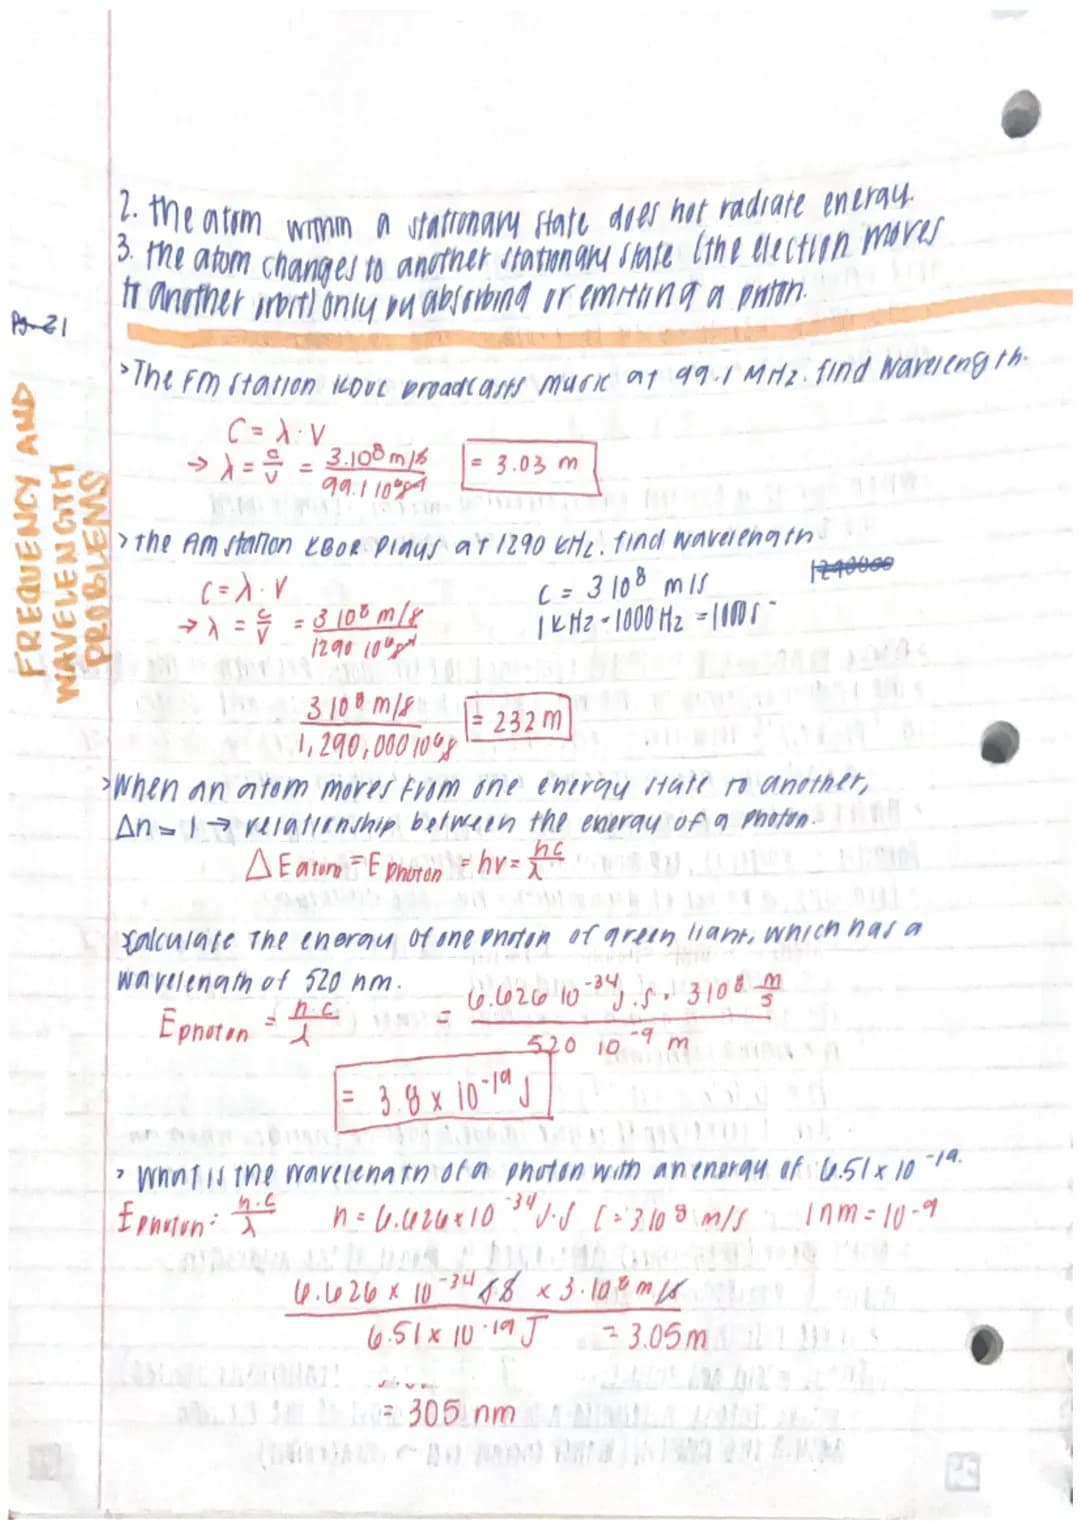 2. the atom within a stationary state does not radiate energy.
3. the atom changes to another stationary state (the election moves
to another orbit) only by absorbing or emitting a photon.
Pg 21
FREQUENCY AND
WAVELENGTH
PROBLEMS
>The FM station KDVE broadcasts music at 99.1 MHz. find wavelength.
C = λ · V
→ λ = c/v = 3.10⁸ m/s / 99.1 10⁶ s⁻¹ = 3.03 m
> the AM station KBOR Plays at 1290 KHz. find wavelength
1290000
C = λ · V C = 3 10⁸ m/s
→ λ = c/v = 3 10⁸ m/s / 1290 10⁶ s⁻¹ 1 KHz = 1000 Hz = 1000 s⁻
3 10⁸ m/s / 1,290,000 10⁶ s = 232 m
>When an atom moves from one energy state to another,
Δn = 1 → relationship between the energy of a photon.
Δ E atom = E photon = hv = hc/λ
calculate the energy of one photon of green light, which has a
wavelength of 520 nm.
E photon = h.c/λ = 6.626 10⁻³⁴ J.s. 3 10⁸ m/s / 520 10⁻⁹ m
= 3.8 x 10⁻¹⁹ J
> What is the wavelength of a photon with an energy of 6.51 x 10⁻¹⁹.
E photon = h.c/λ h = 6.626 x 10⁻³⁴ J.s C = 3.10⁸ m/s 1 nm = 10⁻⁹
6.626 x 10⁻³⁴ J s x 3.10⁸ m/s / 6.51 x 10⁻¹⁹ J = 3.05 m
= 305 nm